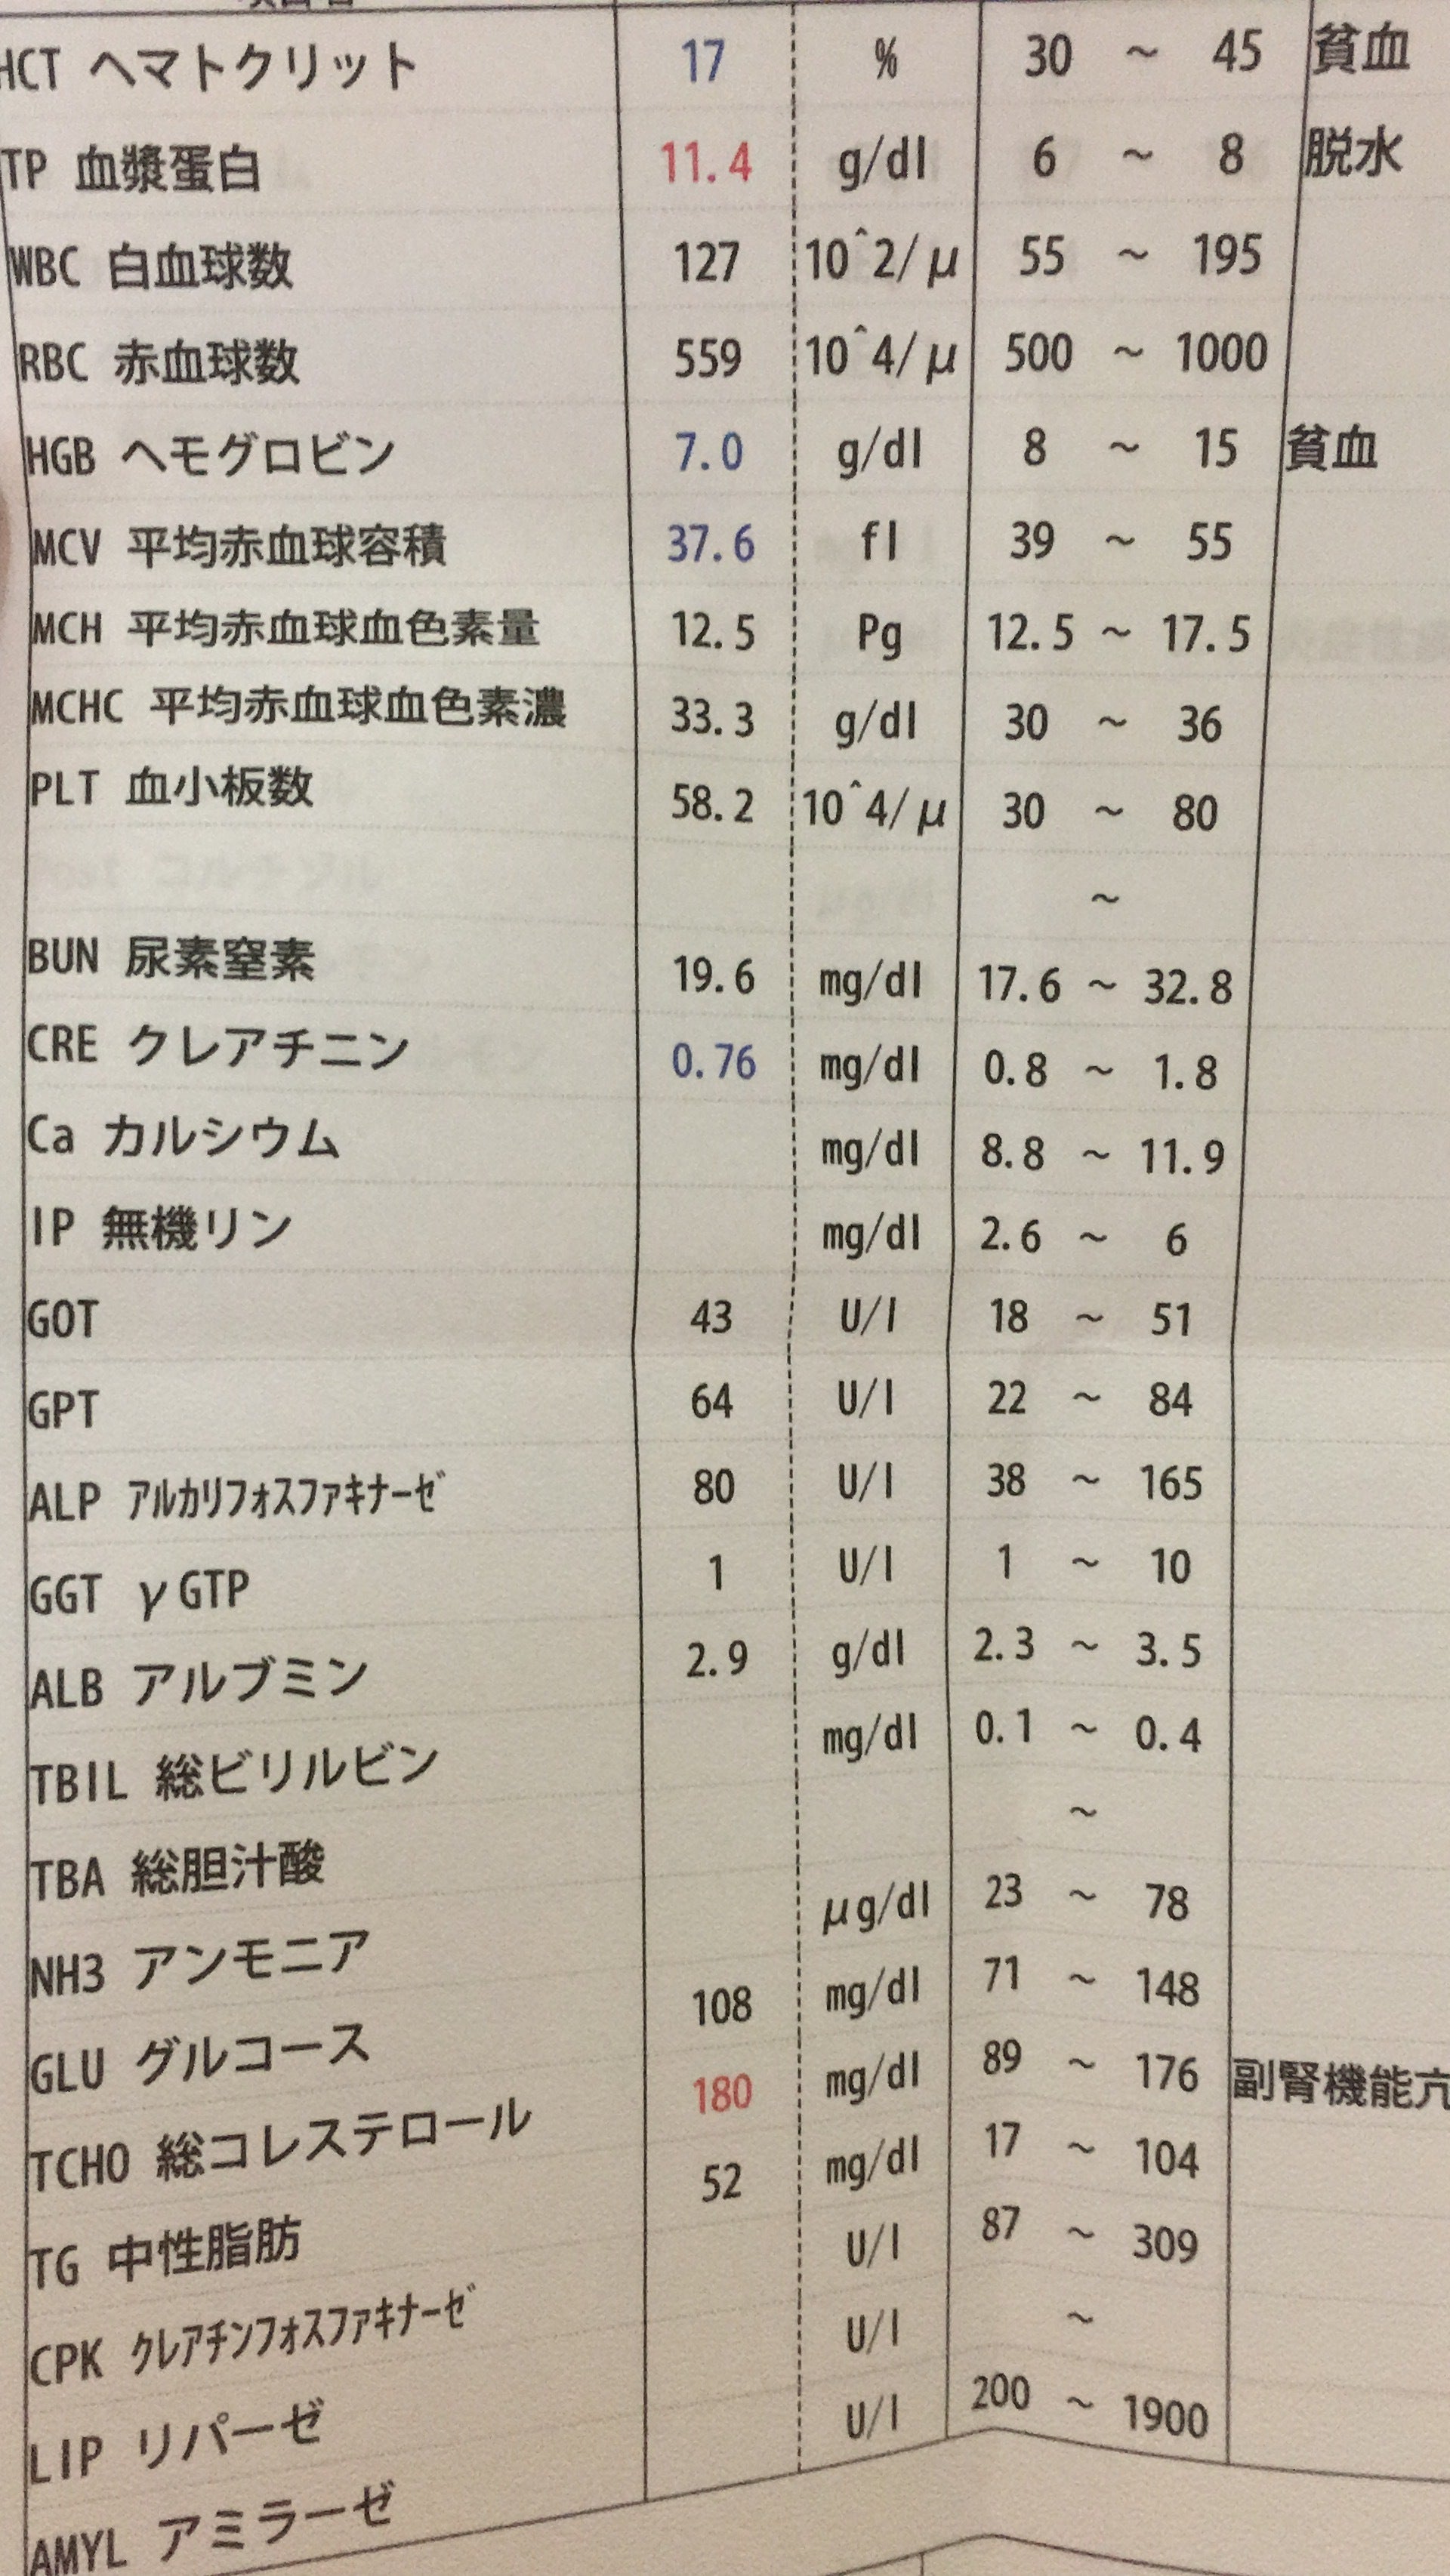 HCT ヘマトクリット 17 % 30 ~ 45 貧血
TP 血漿蛋白 11.4 g/dl 6 ~ 8 脱水
WBC 白血球数 127 10^2/μ 55 ~ 195
RBC 赤血球数 559 10^4/μ 500 ~ 1000
HGB ヘモグロビン 7.0 g/dl 8 ~ 15 貧血
MCV 平均赤血球容積 37.6 fl 39 ~ 55
MCH 平均赤血球血色素量 12.5 Pg 12.5 ~ 17.5
MCHC 平均赤血球血色素濃 33.3 g/dl 30 ~ 36
PLT 血小板数 58.2 10^4/μ 30 ~ 80
~
BUN 尿素窒素 19.6 mg/dl 17.6 ~ 32.8
CRE クレアチニン 0.76 mg/dl 0.8 ~ 1.8
Ca カルシウム mg/dl 8.8 ~ 11.9
IP 無機リン mg/dl 2.6 ~ 6
GOT 43 U/l 18 ~ 51
GPT 64 U/l 22 ~ 84
ALP ｱﾙｶﾘﾌｫｽﾌｧｷﾅｰｾﾞ 80 U/l 38 ~ 165
GGT γGTP 1 U/l 1 ~ 10
ALB アルブミン 2.9 g/dl 2.3 ~ 3.5
TBIL 総ビリルビン mg/dl 0.1 ~ 0.4
TBA 総胆汁酸 ~
NH3 アンモニア μg/dl 23 ~ 78
GLU グルコース 108 mg/dl 71 ~ 148
TCHO 総コレステロール 180 mg/dl 89 ~ 176 副腎機能亢
TG 中性脂肪 52 mg/dl 17 ~ 104
CPK ｸﾚｱﾁﾝﾌｫｽﾌｧｷﾅｰｾﾞ U/l 87 ~ 309
LIP リパーゼ U/l ~
AMYL アミラーゼ U/l 200 ~ 1900